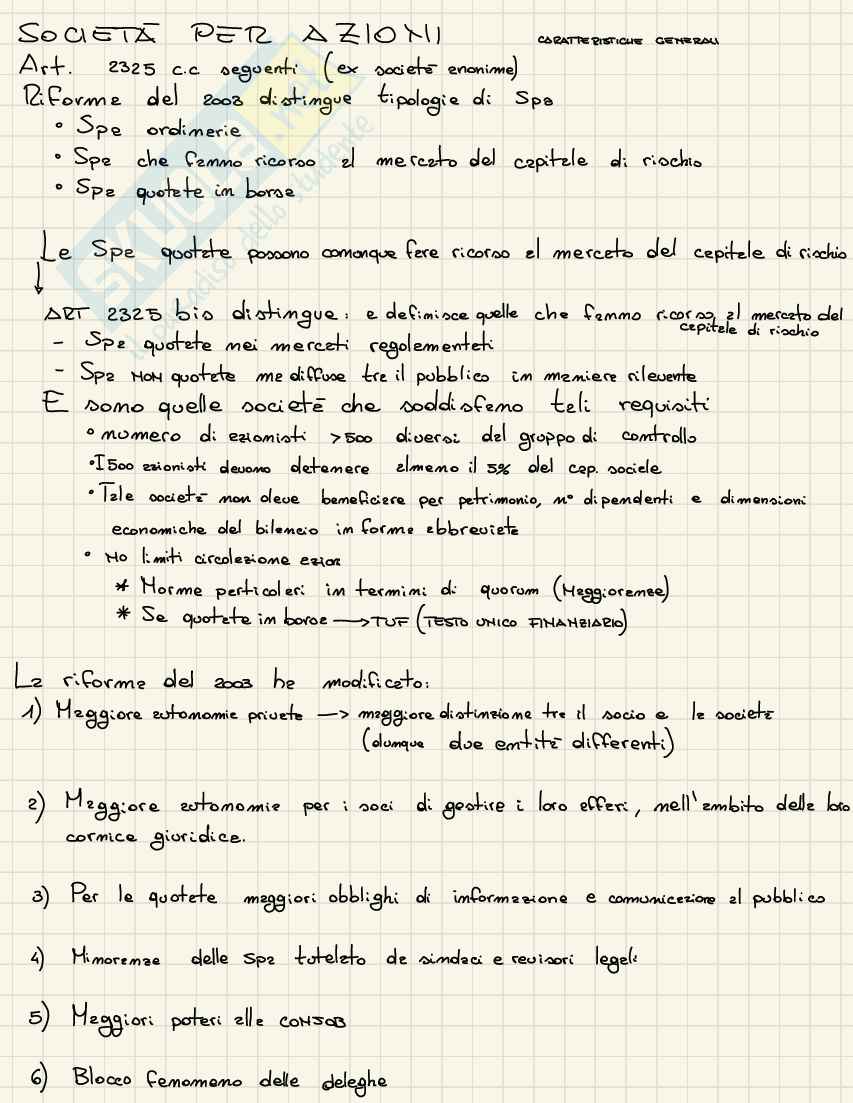 SOCIETÀ PER AZIONI CARATTERISTICHE GENERALI
Art. 2325 c.c seguenti (ex società anonime)
Riforma del 2003 distingue tipologie di Spa
• Spa ordinarie
• Spa che fanno ricorso al mercato del capitale di rischio
• Spa quotate in borsa
Le Spa quotate possono comunque fare ricorso al mercato del capitale di rischio
↓
ART 2325 bis distingue: e definisce quelle che fanno ricorso al mercato del
capitale di rischio
- Spa quotate nei mercati regolamentati
- Spa NON quotate ma diffuse tra il pubblico in maniera rilevante
E sono quelle società che soddisfano tali requisiti
• numero di azionisti >500 diversi dal gruppo di controllo
• I 500 azionisti devono detenere almeno il 5% del cap. sociale
• Tale società non deve beneficiare per patrimonio, n° dipendenti e dimensioni
economiche del bilancio in forma abbreviata
• No limiti circolazione azioni
* Norme particolari in termini di quorum (Maggioranza)
* Se quotate in borsa → TUF (TESTO UNICO FINANZIARIO)
La riforma del 2003 ha modificato:
1) Maggiore autonomia privata → maggiore distinzione tra il socio e la società
(dunque due entità differenti)
2) Maggiore autonomia per i soci di gestire i loro affari, nell'ambito della loro
cornice giuridica.
3) Per le quotate maggiori obblighi di informazione e comunicazione al pubblico
4) Minoranza delle Spa tutelata da sindaci e revisori legali
5) Maggiori poteri alla CONSOB
6) Blocco fenomeno delle deleghe
SKUOLA.net
il paradiso dello studente